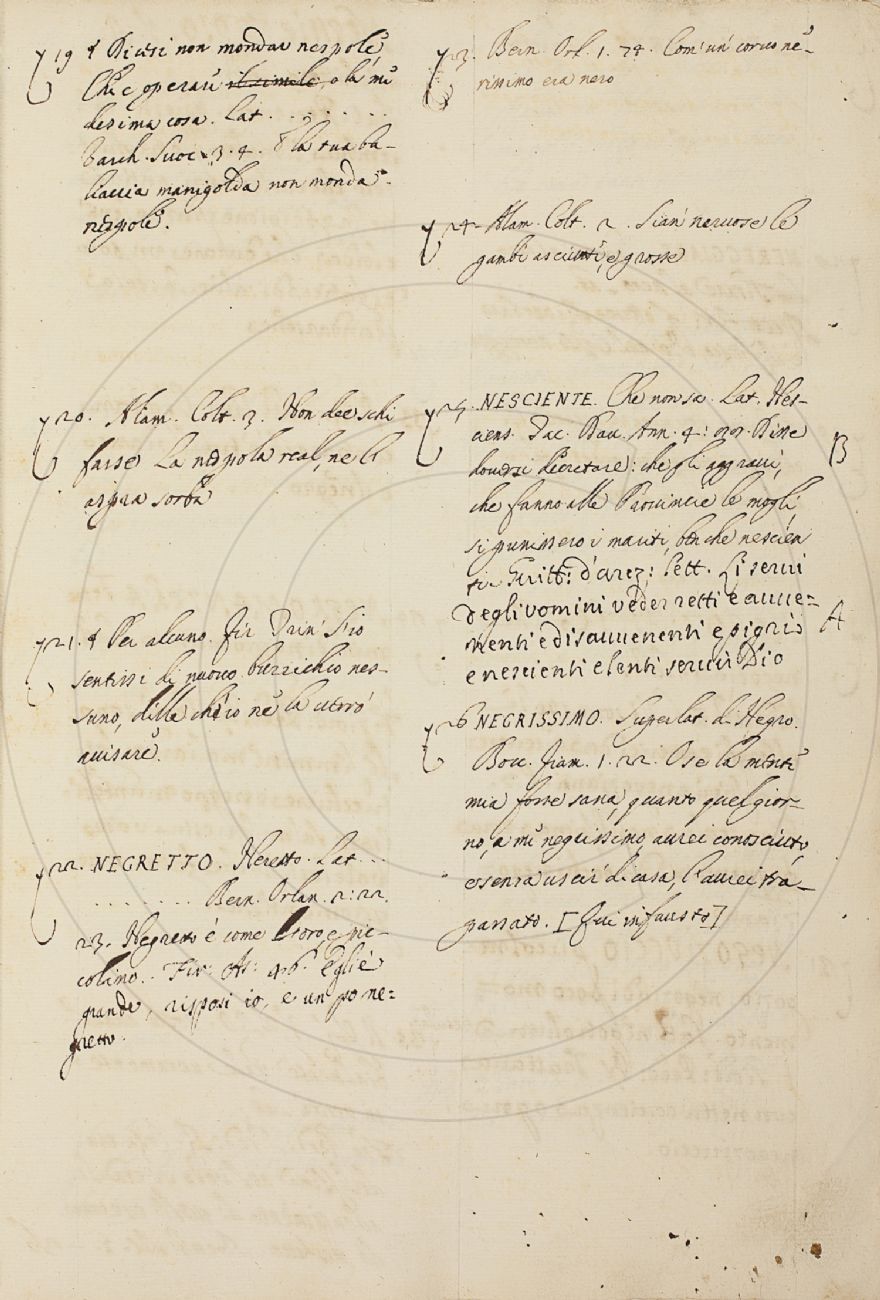 19 ¶ Dicesi non mondar nespole
Chi e operasi il simile, o la me
desima cosa. Lat. . . . . . . .
Varch. Suoc. 3. 4. E la tua ba-
liaccia manigolda non monda
nespole.
20. Alam. Colt. 3. Non dee schi
farse La nespola real, ne l'
aspra sorba
21. ¶ Per alcuno. Fir. Trin.
sentissi di nuovo bucicchio nes-
suno, dille ch'io ne la verrò
avisare.
22. NEGRETTO. Neretto. Lat. . .
. . . . . . . . Bern. Orlan. 2: 22.
23. Negretto é come loro, e pic-
colino. Fir: As: 96. Egli é
grande, risposi io, e un po ne=
gretto.
23. Bern. Orl. 1. 74. Com'un corvo ne-
rissimo era nero
24. Alam. Colt. 2. Sian nervose le
gambe asciutte, e grosse
25. NESCIENTE. Che non sa. Lat. Nes-
ciens. Tac. Dav. Ann. 4: Disse
doversi decretare: che gli aggravi,
che fanno alle Provincie le mogli,
si punissero i mariti, benche nescien
ti. Guitt: d'arez: lett. Li servi
degli vomini veder retti e auue=
nenti e disauuenenti e pigri
e nescienti e lenti servir Dio
B
A
26 NEGRISSIMO. Superlat. di Negro.
Bocc. Fiam. 1. 22. O se la mente
mia fosse sana, quanto quel gior-
no, a me negrissimo, aurei conosciuto,
e senza uscir di casa, l'aurei tra-
passato. [Qui infausto]